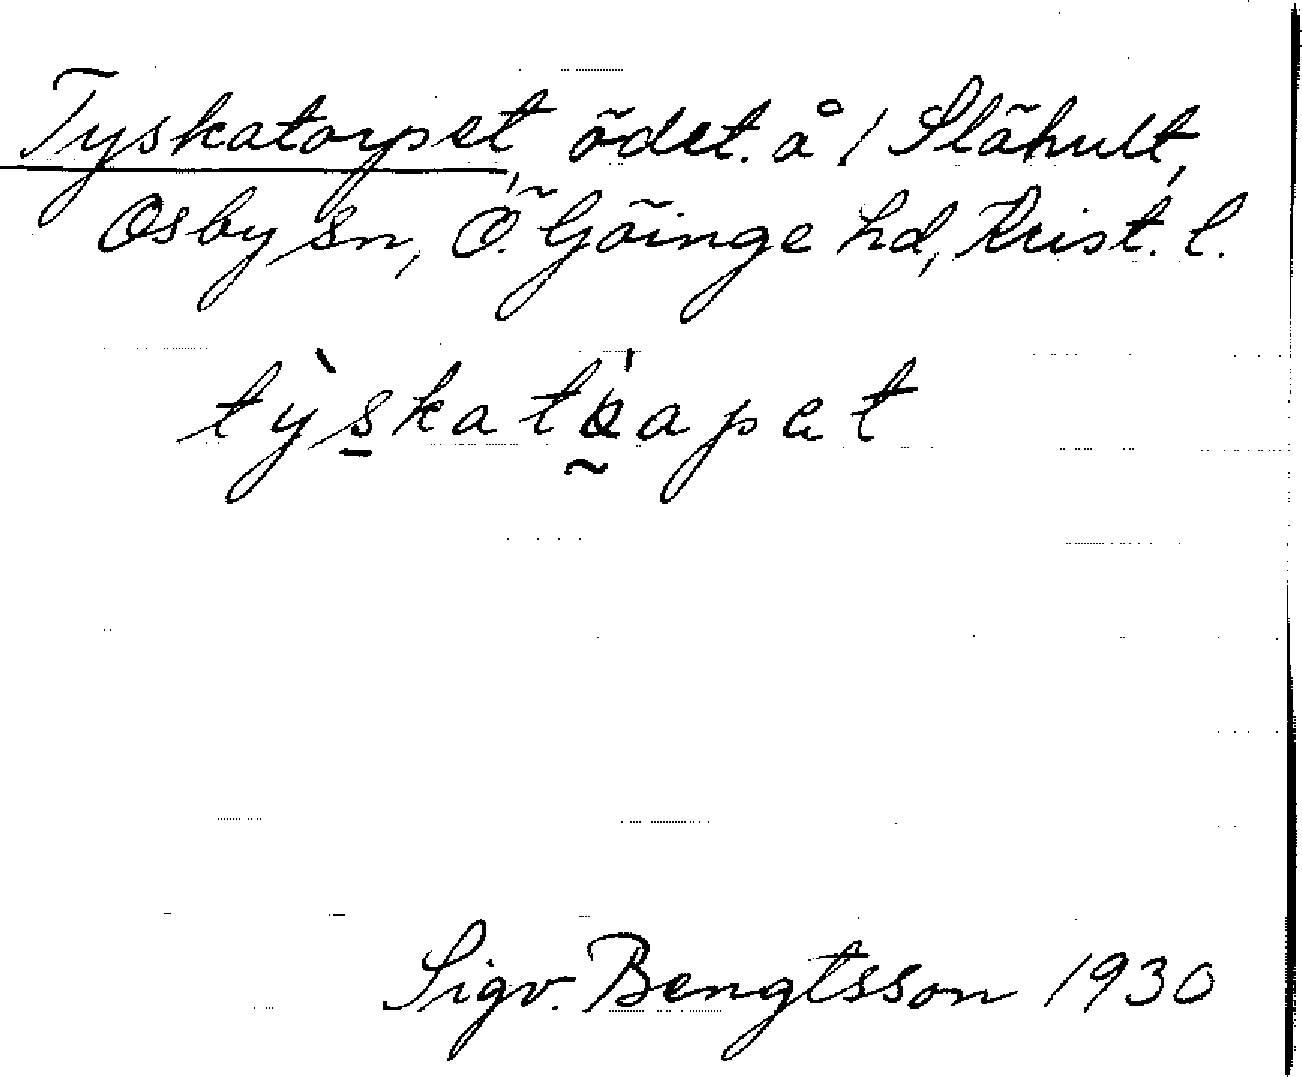 Tyskatorpet, ödet. å 1 Slähult,
Osby sn, Ö. Göinge hd, Krist. l.
Sigv. Bengtsson 1930